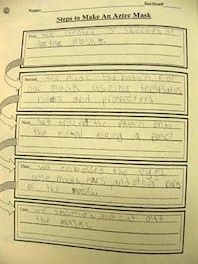 Name:
Steps to Make An Aztec Mask
First, we created 3 sketches of
mask.
Second, we made the pattern for
our mask useing templates
rulers and protractors.
Next, we traced the pattern onto
the metal useing a pencil
Then, we embossed the eyes
nose mouth ears and other parts
of the mask.
Last, we cut out
the masks.